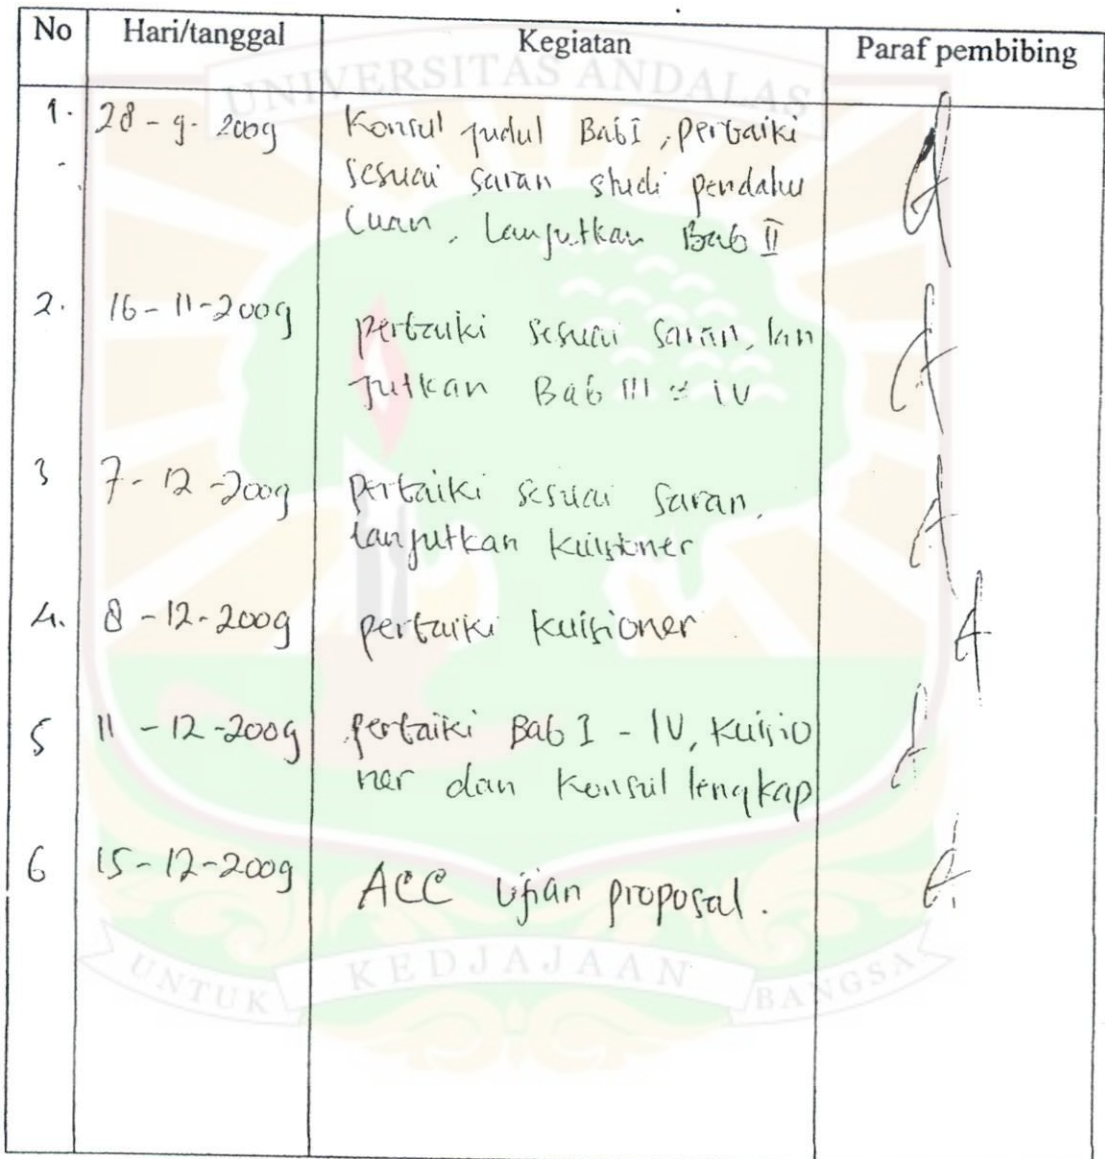 No Hari/tanggal Kegiatan Paraf pembibing
UNIVERSITAS ANDALAS
1. 28 - 9 - 2009 Konsul judul Bab I, perbaiki
sesuai saran studi pendahu
luan, lanjutkan Bab II
2. 16 - 11 - 2009 perbaiki sesuai saran, lan
jutkan Bab III & IV
3 7 - 12 - 2009 perbaiki sesuai saran,
lanjutkan kuisioner
4. 8 - 12 - 2009 perbaiki kuisioner
5 11 - 12 - 2009 perbaiki Bab I - IV, kuisio
ner dan konsul lengkap
6 15 - 12 - 2009 ACC ujian proposal.
UNTUK KEDJAJAAN BANGSA